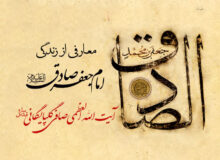 معارفی از زندگی
امام جعفر صادق علیه‌السلام
آیت الله العظمی صافی گلپایگانی
جعفر بن محمد
الصادق